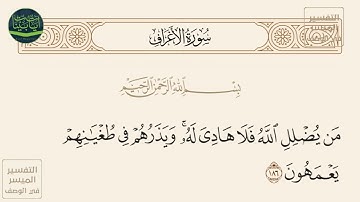 سُورَةُ الأَعْرَافِ
بِسْمِ اللَّهِ الرَّحْمَٰنِ الرَّحِيمِ
مَن يُضْلِلِ ٱللَّهُ فَلَا هَادِىَ لَهُۥۚ وَيَذَرُهُمْ فِى طُغْيَـٰنِهِمْ
يَعْمَهُونَ ١٨٦
التفسير
الميسر
في الوصف
التفسير
الميسر
في الوصف